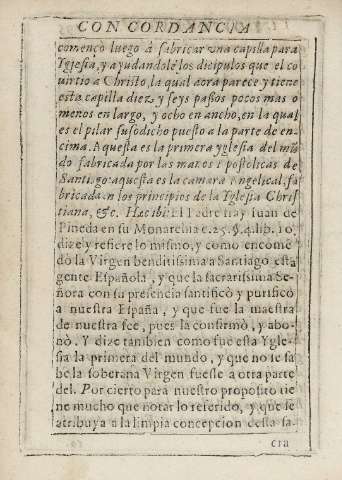 CONCORDANCIA
començò luego à fabricar vna capilla para
Yglesia, y ayudandole los dicipulos que el co
uirtio a Christo, la qual aora parece y tiene
esta capilla diez y seys passos pocos mas o
menos en largo, y ocho en ancho, en la qual
es el pilar susodicho puesto a la parte de en-
cima. Aquesta es la primera yglesia del mũ
do fabricada por las manos Apostolicas de
Santiago: aquesta es la camara Angelical, fa
bricada en los principios de la Yglesia Chris
tiana, &c. El Padre fray Iuan de
Pineda en su Monarchia c.25.§.4.lib.10,
dize y refiere lo mismo, y como encomẽ
dò la Virgen benditissima a Santiago esta
gente Española, y que la sacratissima Se-
ñora con su presencia santificò y purificò
a nuestra España, y que fue la maestra
de nuestra fee, pues la confirmò, y abo-
nò. Y dize tambien como fue esta Ygle-
sia la primera del mundo, y que no se sa
be la soberana Virgen fuesse a otra parte
del. Por cierto para nuestro proposito tie
ne mucho que notar lo referido, y que se
atribuya a la limpia concepcion desta sa-
cra